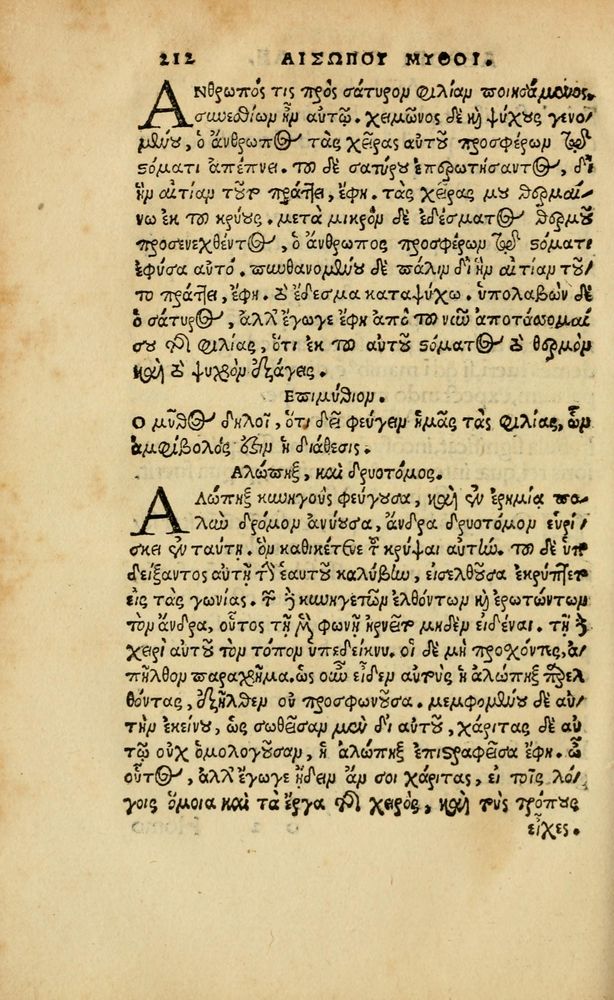 212 ΑΙΣΩΠΟΥ ΜΥΘΟΙ.
ΑΝθρωπός τις πρὸς σάτυρον φιλίαν ποιησάμενος,
συνεσθίων ἦν αὐτῷ. χειμῶνος δὲ κὶ ψύχους γενο
μένου, ὁ ἄνθρωπος τὰς χεῖρας αὐτοῦ προσφέρων τῷ
στόματι ἀπέπνει. τοῦ δὲ σατύρου ἐπερωτήσαντος, δι
ἣν αἰτίαν τοῦτο πράττει, ἔφη. τὰς χεῖράς μου θερμαί
νω ἐκ τοῦ κρύους. μετὰ μικρὸν δὲ ἐδέσματος θερμοῦ
προσενεχθέντος, ὁ ἄνθρωπος προσφέρων τῷ στόματι
ἐφύσα αὐτό. πυνθανομένου δὲ πάλιν δι ἣν αἰτίαν τοῦ
το πράττει, ἔφη. τὸ ἔδεσμα καταψύχω. ὑπολαβὼν δὲ
ὁ σάτυρος, ἀλλ' ἔγωγε ἔφη ἀπὸ τοῦ νῦν ἀποτάσσομαί
σου τῇ φιλίᾳ, ὅτι ἐκ τοῦ αὐτοῦ στόματος τὸ θερμὸν
καὶ τὸ ψυχρὸν ἐξάγεις.
Ἐπιμύθιον.
Ο μῦθος δηλοῖ, ὅτι δεῖ φεύγειν ἡμᾶς τὰς φιλίας, ὧν
ἀμφίβολός ἐστιν ἡ διάθεσις.
Ἀλώπηξ, καὶ δρυοτόμος.
ΑΛώπηξ κυνηγοὺς φεύγουσα, καὶ ἐν ἐρημίᾳ πο
λὺν δρόμον ἀνύουσα, ἄνδρα δρυοτόμον εὑρί
σκει ἐν ταύτῃ. ὃν καθικέτευε τοῦ κρύψαι αὐτήν. τοῦ δὲ ὑπ
δείξαντος αὐτῇ τὴν ἑαυτοῦ καλύβην, εἰσελθοῦσα ἐκρύπτετο
εἰς τὰς γωνίας. τῶν δὲ κυνηγετῶν ἐλθόντων κὶ ἐρωτώντων
τὸν ἄνδρα, οὗτος τῇ μὲν φωνῇ ἠρνεῖτο μηδὲν εἰδέναι. τῇ δὲ
χειρὶ αὐτοῦ τὸν τόπον ὑπεδείκνυ. οἱ δὲ μὴ προσχόντες, ἀ
πῆλθον παραχρῆμα. ὡς οὖν εἶδεν αὐτοὺς ἡ ἀλώπηξ παρελ
θόντας, ἐξῆλθεν οὐ προσφωνοῦσα. μεμφομένου δὲ αὐ
τὴν ἐκείνου, ὡς σωθεῖσαν μὲν δι αὐτοῦ, χάριτας δὲ αὐ
τῷ οὐχ ὁμολογοῦσαν, ἡ ἀλώπηξ ἐπιστραφεῖσα ἔφη. ὦ
οὗτος, ἀλλ' ἔγωγε ᾔδειν ἄν σοι χάριτας, εἰ τοῖς λό
γοις ὅμοια καὶ τὰ ἔργα τῆς χειρὸς, καὶ τοὺς τρόπους
εἶχες.